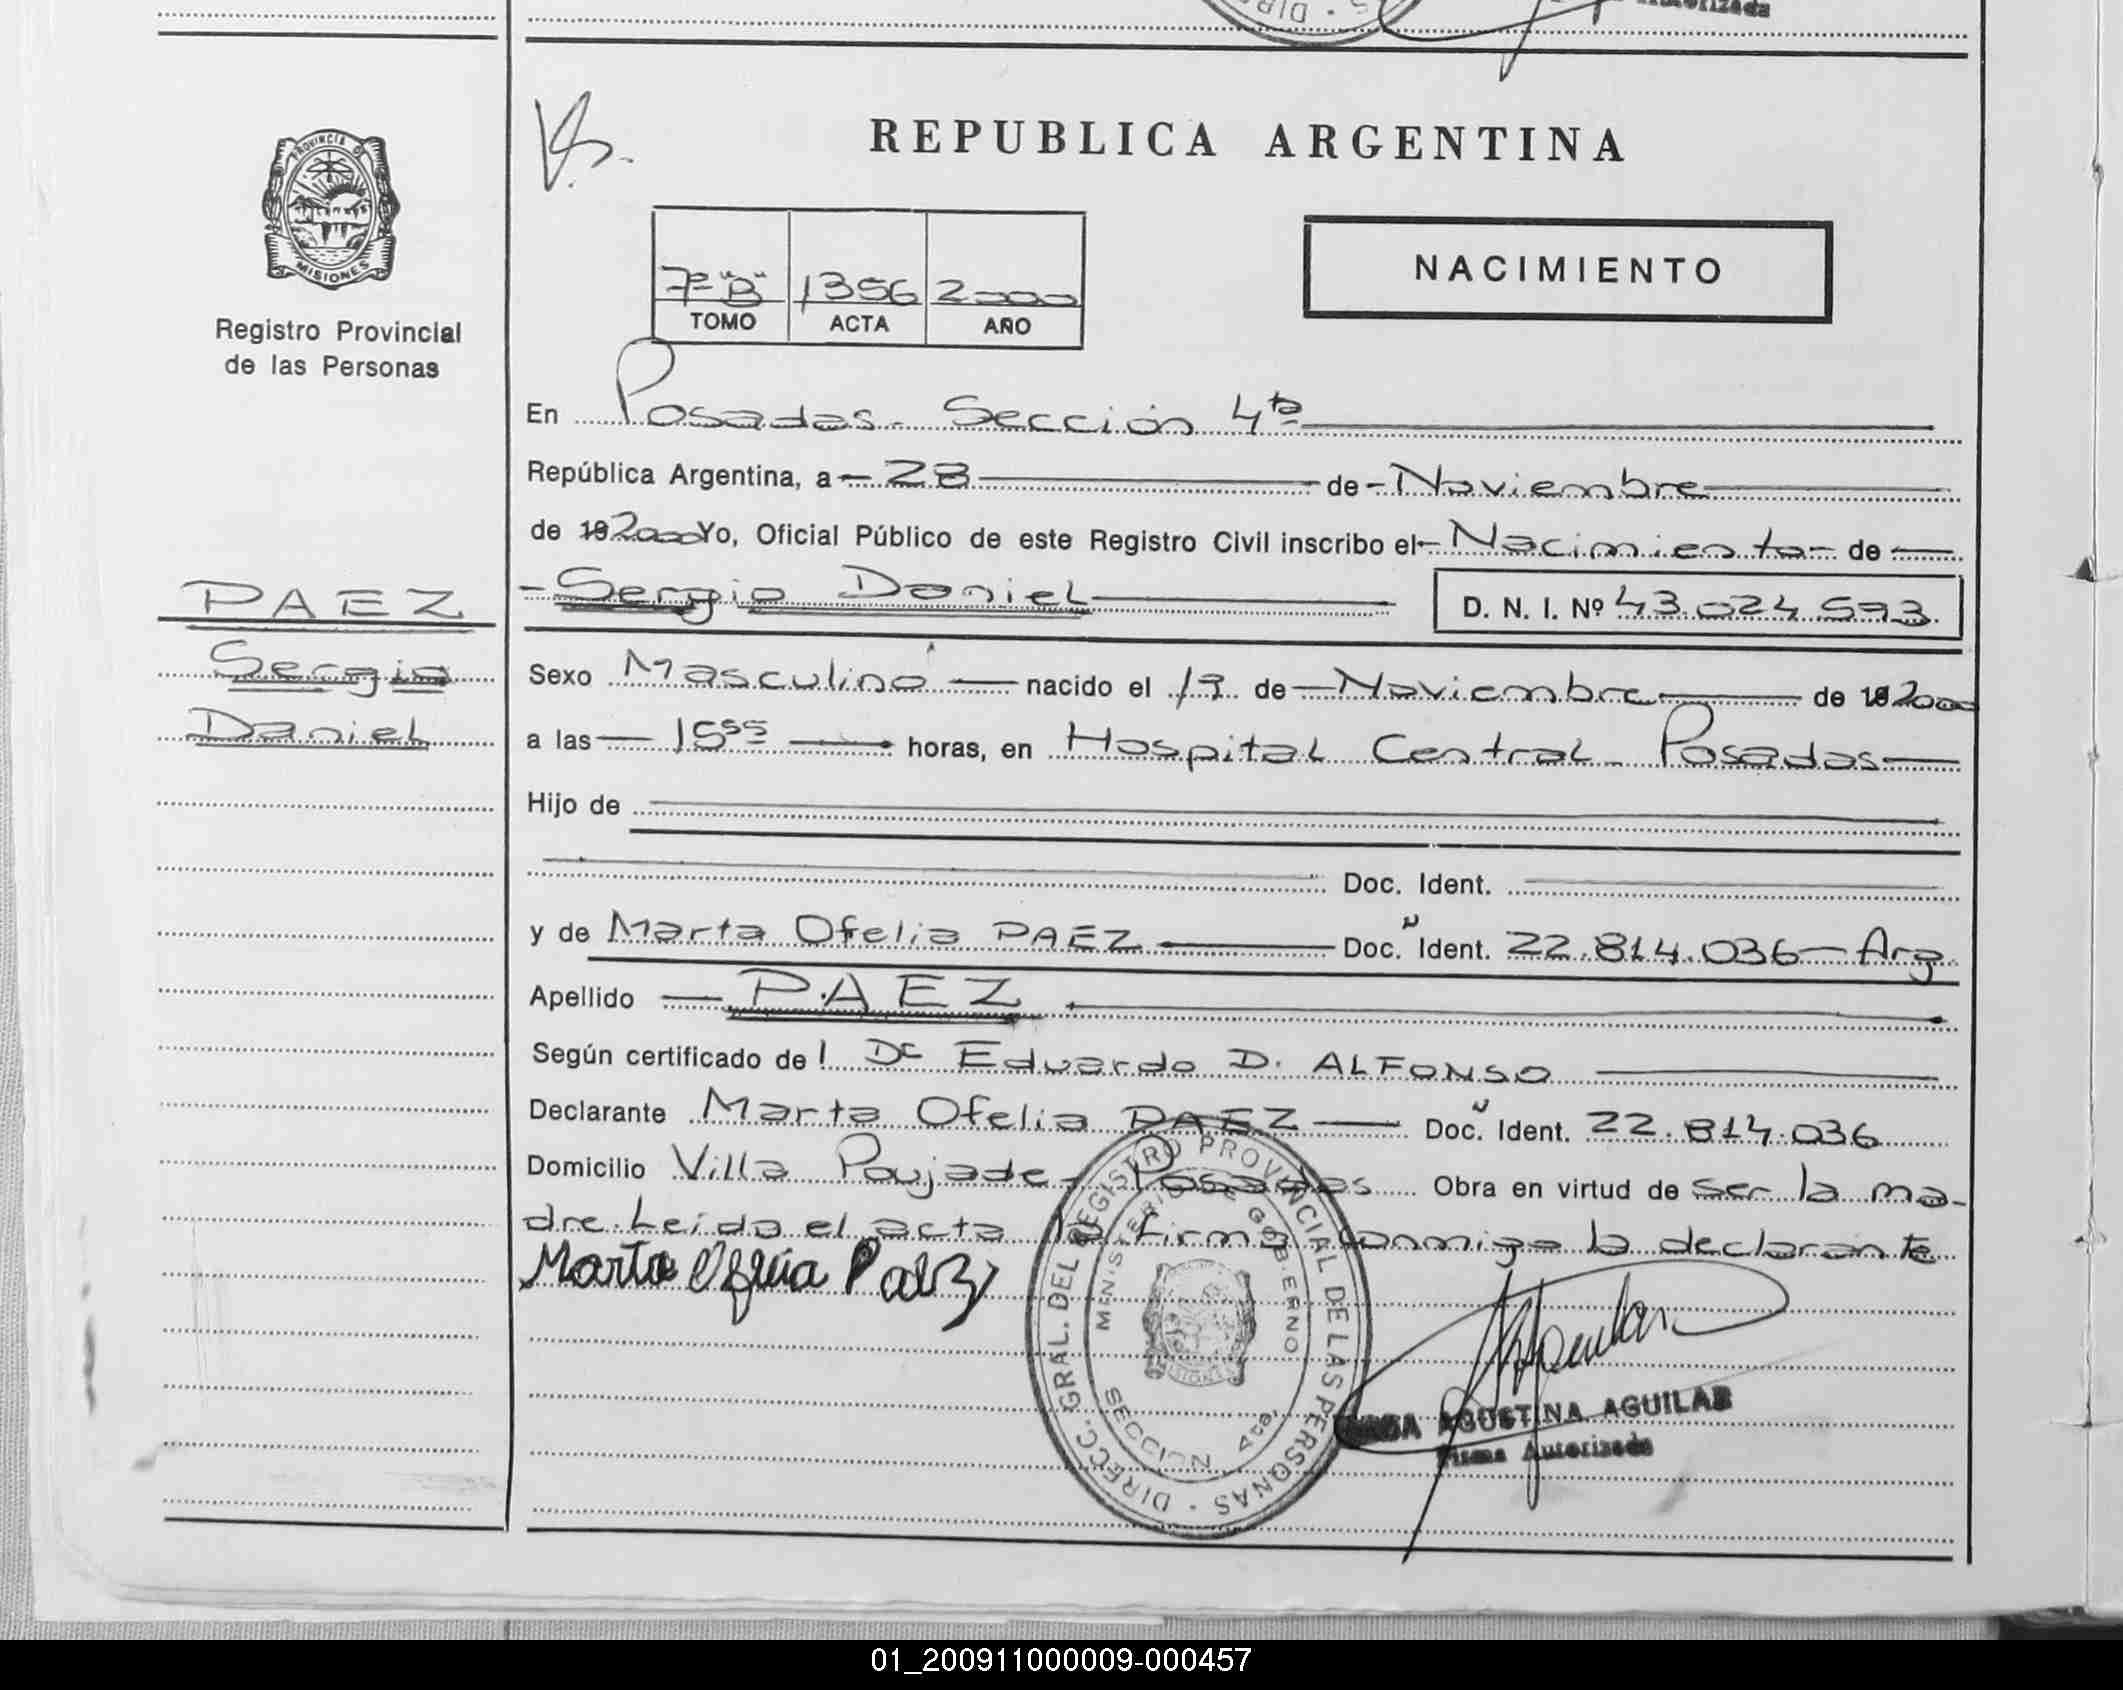 REPUBLICA ARGENTINA
PROVINCIA D
MISIONES
Registro Provincial
de las Personas
7º "B" 1356 2000
TOMO ACTA AÑO
NACIMIENTO
En Posadas - Sección 4ta
República Argentina, a 28 de Noviembre
de 19 2000 Yo, Oficial Público de este Registro Civil inscribo el Nacimiento de
Sergio Daniel D. N. I. Nº 43.024.593
PAEZ
Sergio
Daniel
Sexo Masculino nacido el 19 de Noviembre de 19 2000
a las 15 55 horas, en Hospital Central - Posadas
Hijo de
Doc. Ident.
y de Marta Ofelia PAEZ Doc. Ident. 22.814.036 - Arg
Apellido PAEZ
Según certificado de l Dr Eduardo D. ALFONSO
Declarante Marta Ofelia PAEZ Doc. Ident. 22.814.036
Domicilio Villa Poujade - Posadas Obra en virtud de ser la ma-
dre. Leída el acta la firma conmigo la declarante
Marta Ofelia Paez
DIRECC. GRAL. DEL REGISTRO PROVINCIAL DE LAS PERSONAS
MINISTERIO DE GOBIERNO
SECCION 4ta.
AGUSTINA AGUILAR
Firma Autorizada
01_200911000009-000457